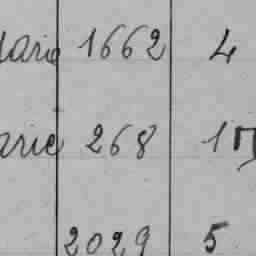 Marie 1662 4
arie 268 1
2029 5